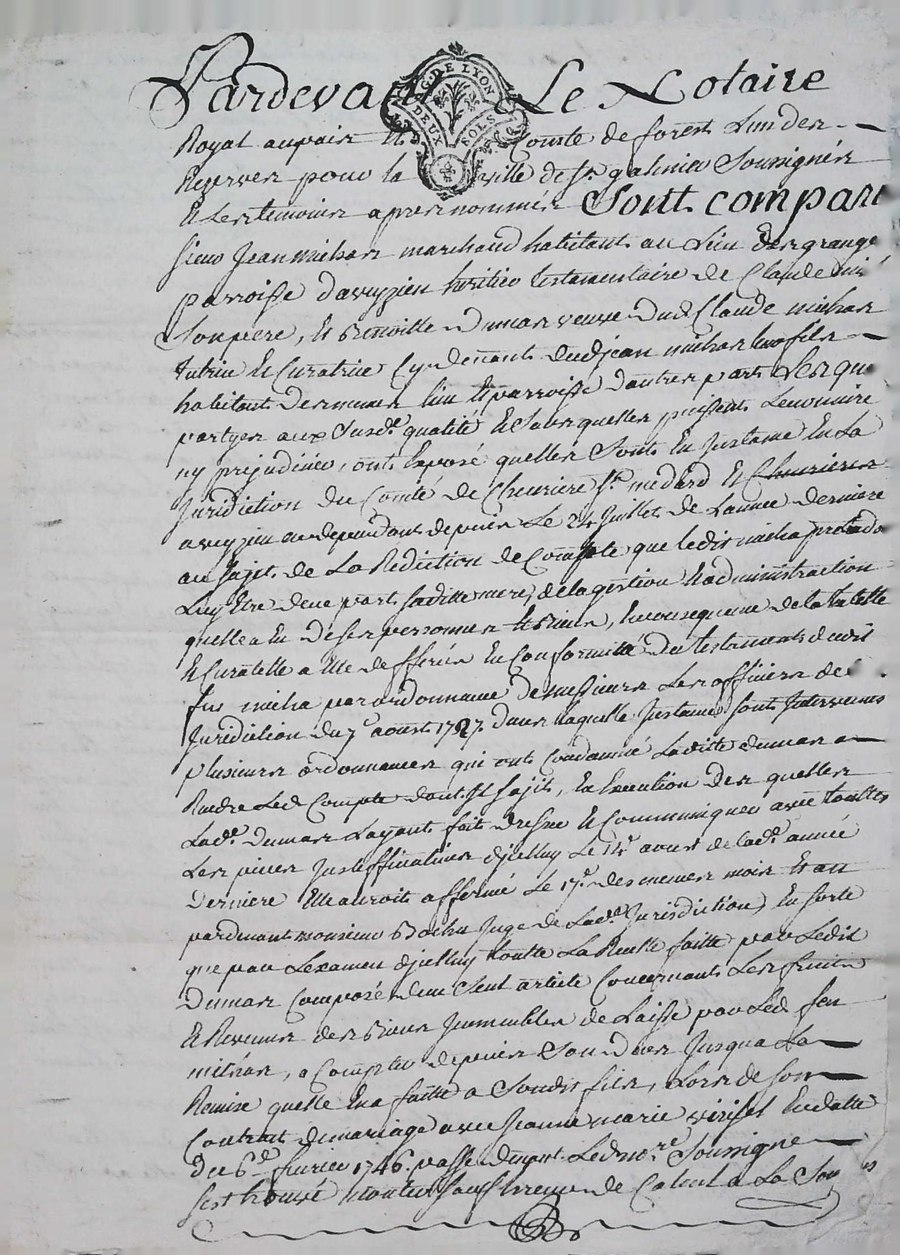 Pardevant Le Notaire
G. DE LYON
DEUX SOLS
Royal au païs et Comté de forest Lun des
Reserves pour la ville de St. galmier Soussignés
Et Les temoins apres nommés Sont compar
sieur Jean michas marchand habitant au Lieu des grange
parroisse d'aveyzieu heritier testamentaire de Claude
Son pere, Et Benoitte Dumas veuve dud Claude michas
tutrice Et Curatrice Cy devant dud jean michas Leur fils
habitant des memes lieu Et parroisse d'autres part Lesque
partyes aux Susd. qualité Et Sans quelles puissent Le
ny prejudicier, ont Exposé quelles Sont En Instance En La
Juridiction du Comté de Cheuriere St. medard Et
aveyzieu en dependant depuis Le 24 Juillet de Lannée derniere
au Sujet de La Rediction de Compte que ledit micha
Luy Etre deue par Saditte mere, de la gestion Et administration
quelle a Eu de Ses personnes Et Biens, En consequence de la tutelle
Et Curatelle a Elle defferée En Conformité du testament dudit
feu micha par ordonnance de messieurs Les officiers de
Juridiction du 7e aoust 1727. Dans laquelle Instance Sont Intervenues
plusieurs ordonnances qui ont Condamné Laditte dumas a
Rendre Led Compte dont Il Sagit, En Execution des quelles
Lade. Dumas Layant fait dresser Et Communiquer avec toutes
Les pieces Justifficatives d'jcelluy Le de lade. année
Derniere Elle auroit affermé Le 17e. des memes mois Et an
pardevant monsieur Juge de Lade. Jurisdiction, En Sorte
que par Lexamen d'jcelluy toutte La Recette faitte par Ledit
Dumas Composé dun Seul article Concernant Les fruits
Et Revenus des Biens Immeubles de Laissé par Led feu
michas, a Compter depuis Son deces Jusqua La
Remise quelle En a faitte a Sondit fils, Lors de Son
Contrat de mariage avec Jeanne marie En datte
du 6e. fevrier 1746. passé devant Led nore. Soussigne
Sest trouvé monter Sauf Erreur de Calcul a La Som